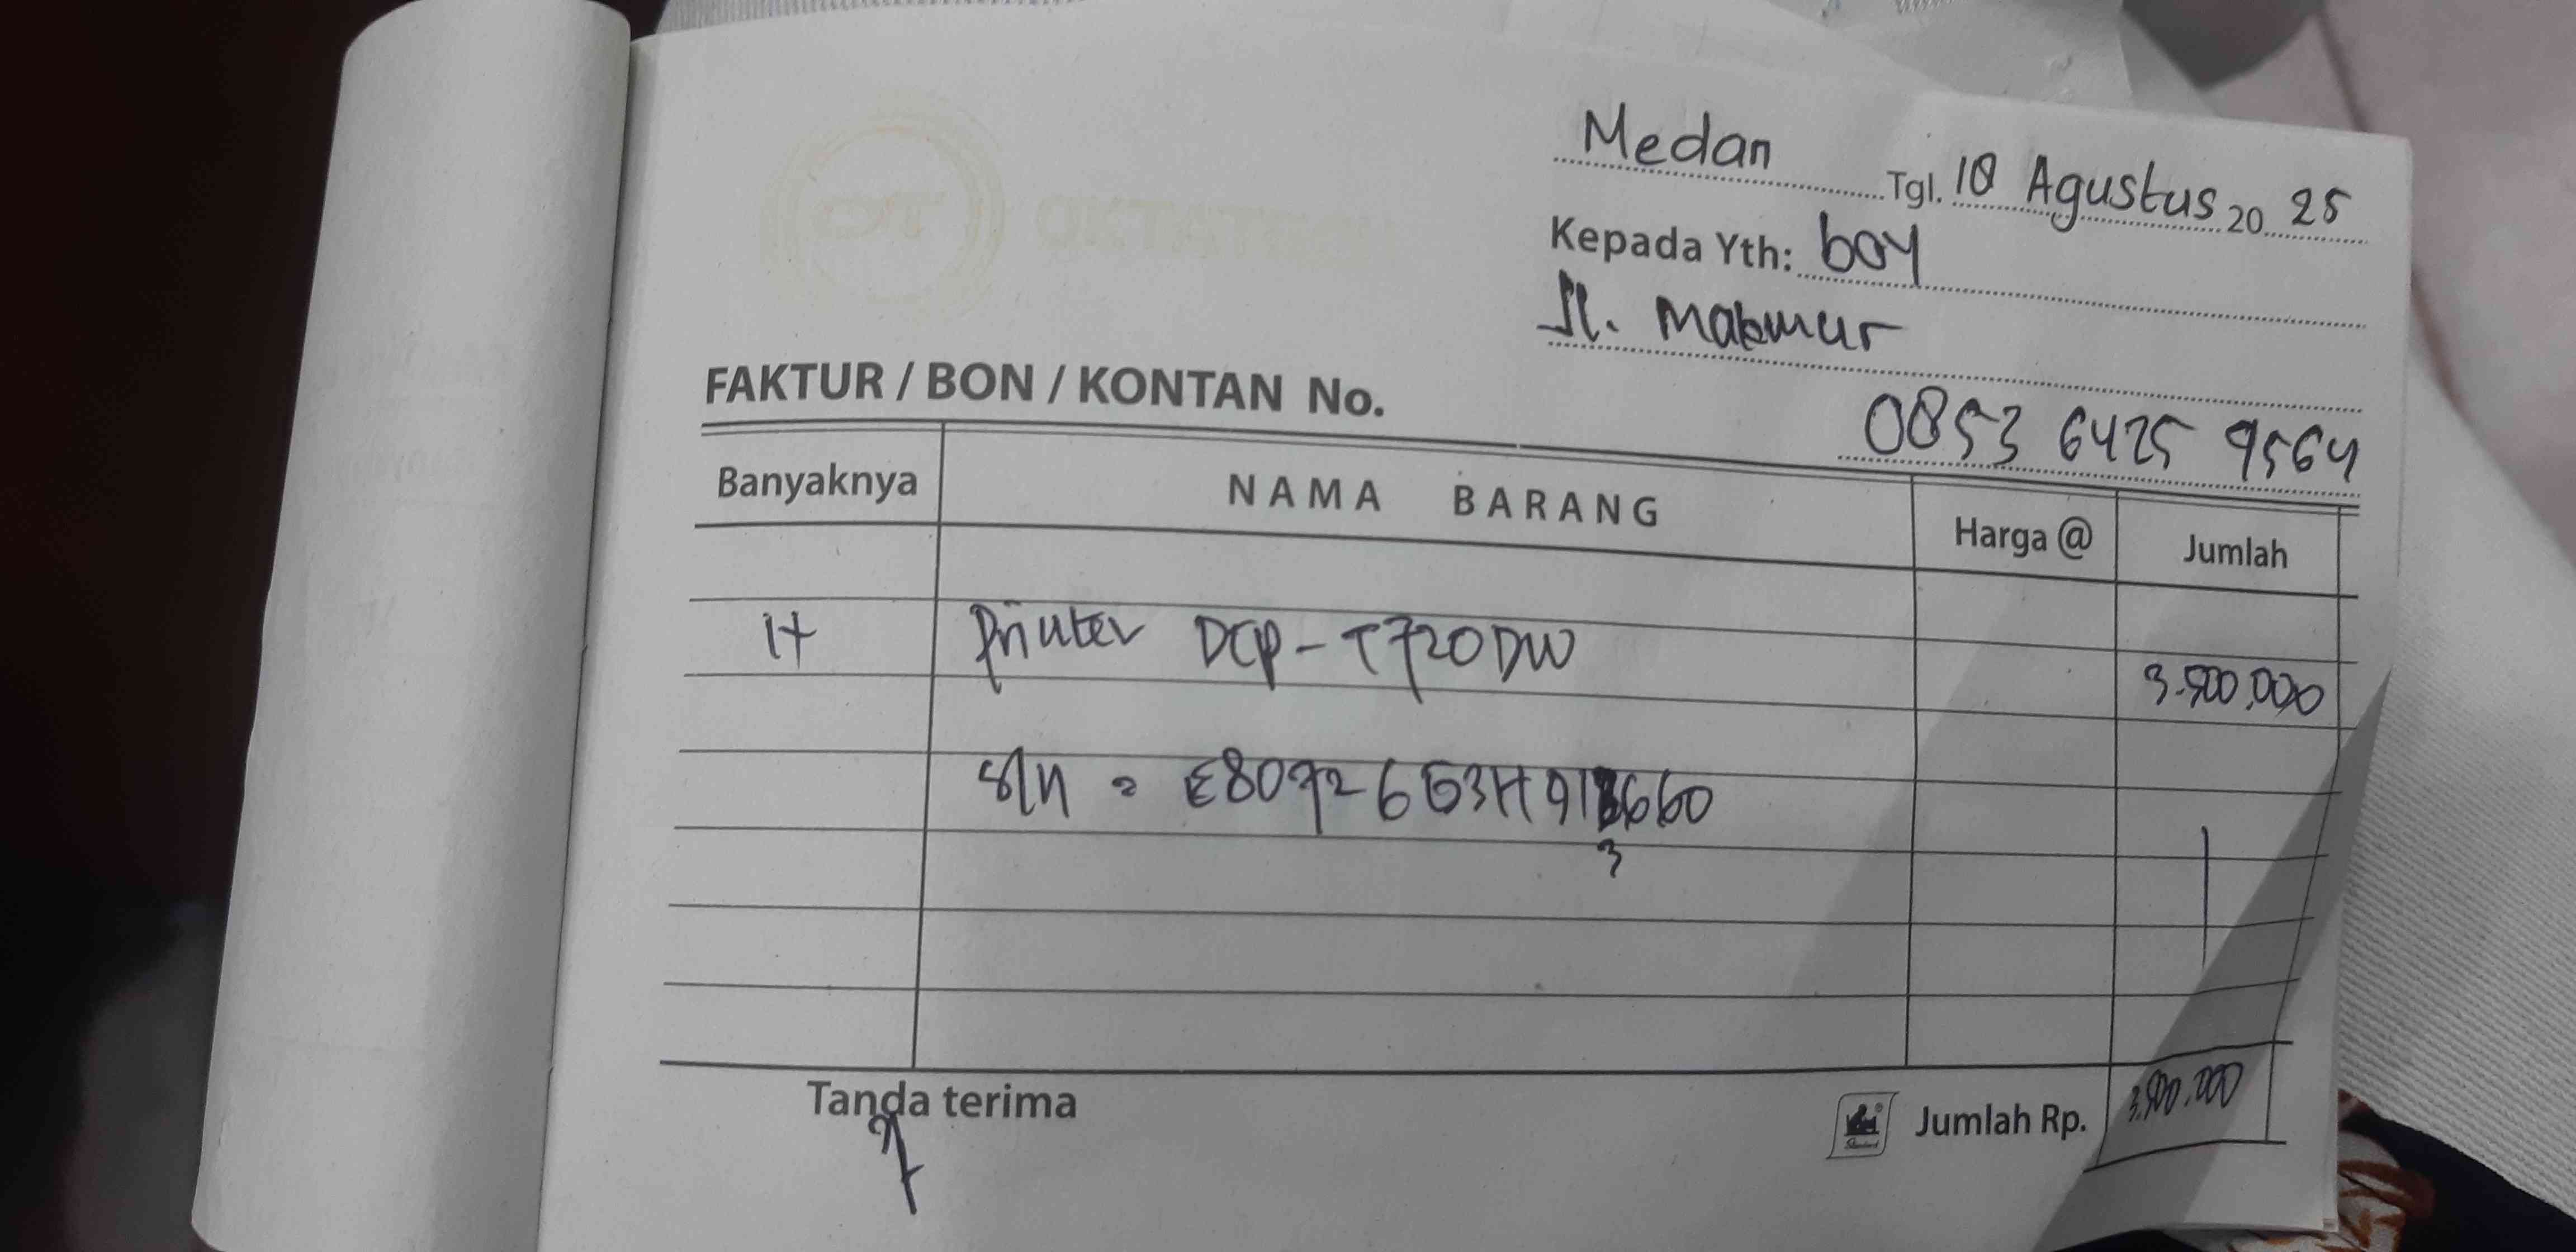 Medan Tgl. 18 Agustus 20 25
Kepada Yth: boy
Jl. Makmur
FAKTUR / BON / KONTAN No.
0853 6425 9564
Banyaknya NAMA BARANG Harga @ Jumlah
1+ Printer DCP-T720DW 3.500.000
S/N = E80726G3H913660
3
Tanda terima Jumlah Rp. 3.500.000